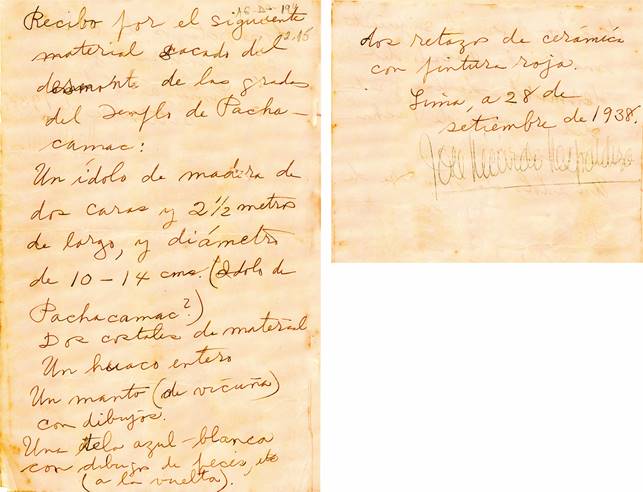 Recibo por el siguiente
material sacado del
desmonte de las gradas
del Templo de Pacha-
camac:
Un ídolo de madera de
dos caras y 2½ metros
de largo, y diámetro
de 10-14 cms. (Idolo de
Pachacamac?)
Dos costales de material
Un huaco entero
Un manto (de vicuña)
con dibujos.
Una tela azul-blanca
con dibujos de peces, etc
(a la vuelta).
dos retazos de cerámica
con pintura roja.
Lima, a 28 de
setiembre de 1938.